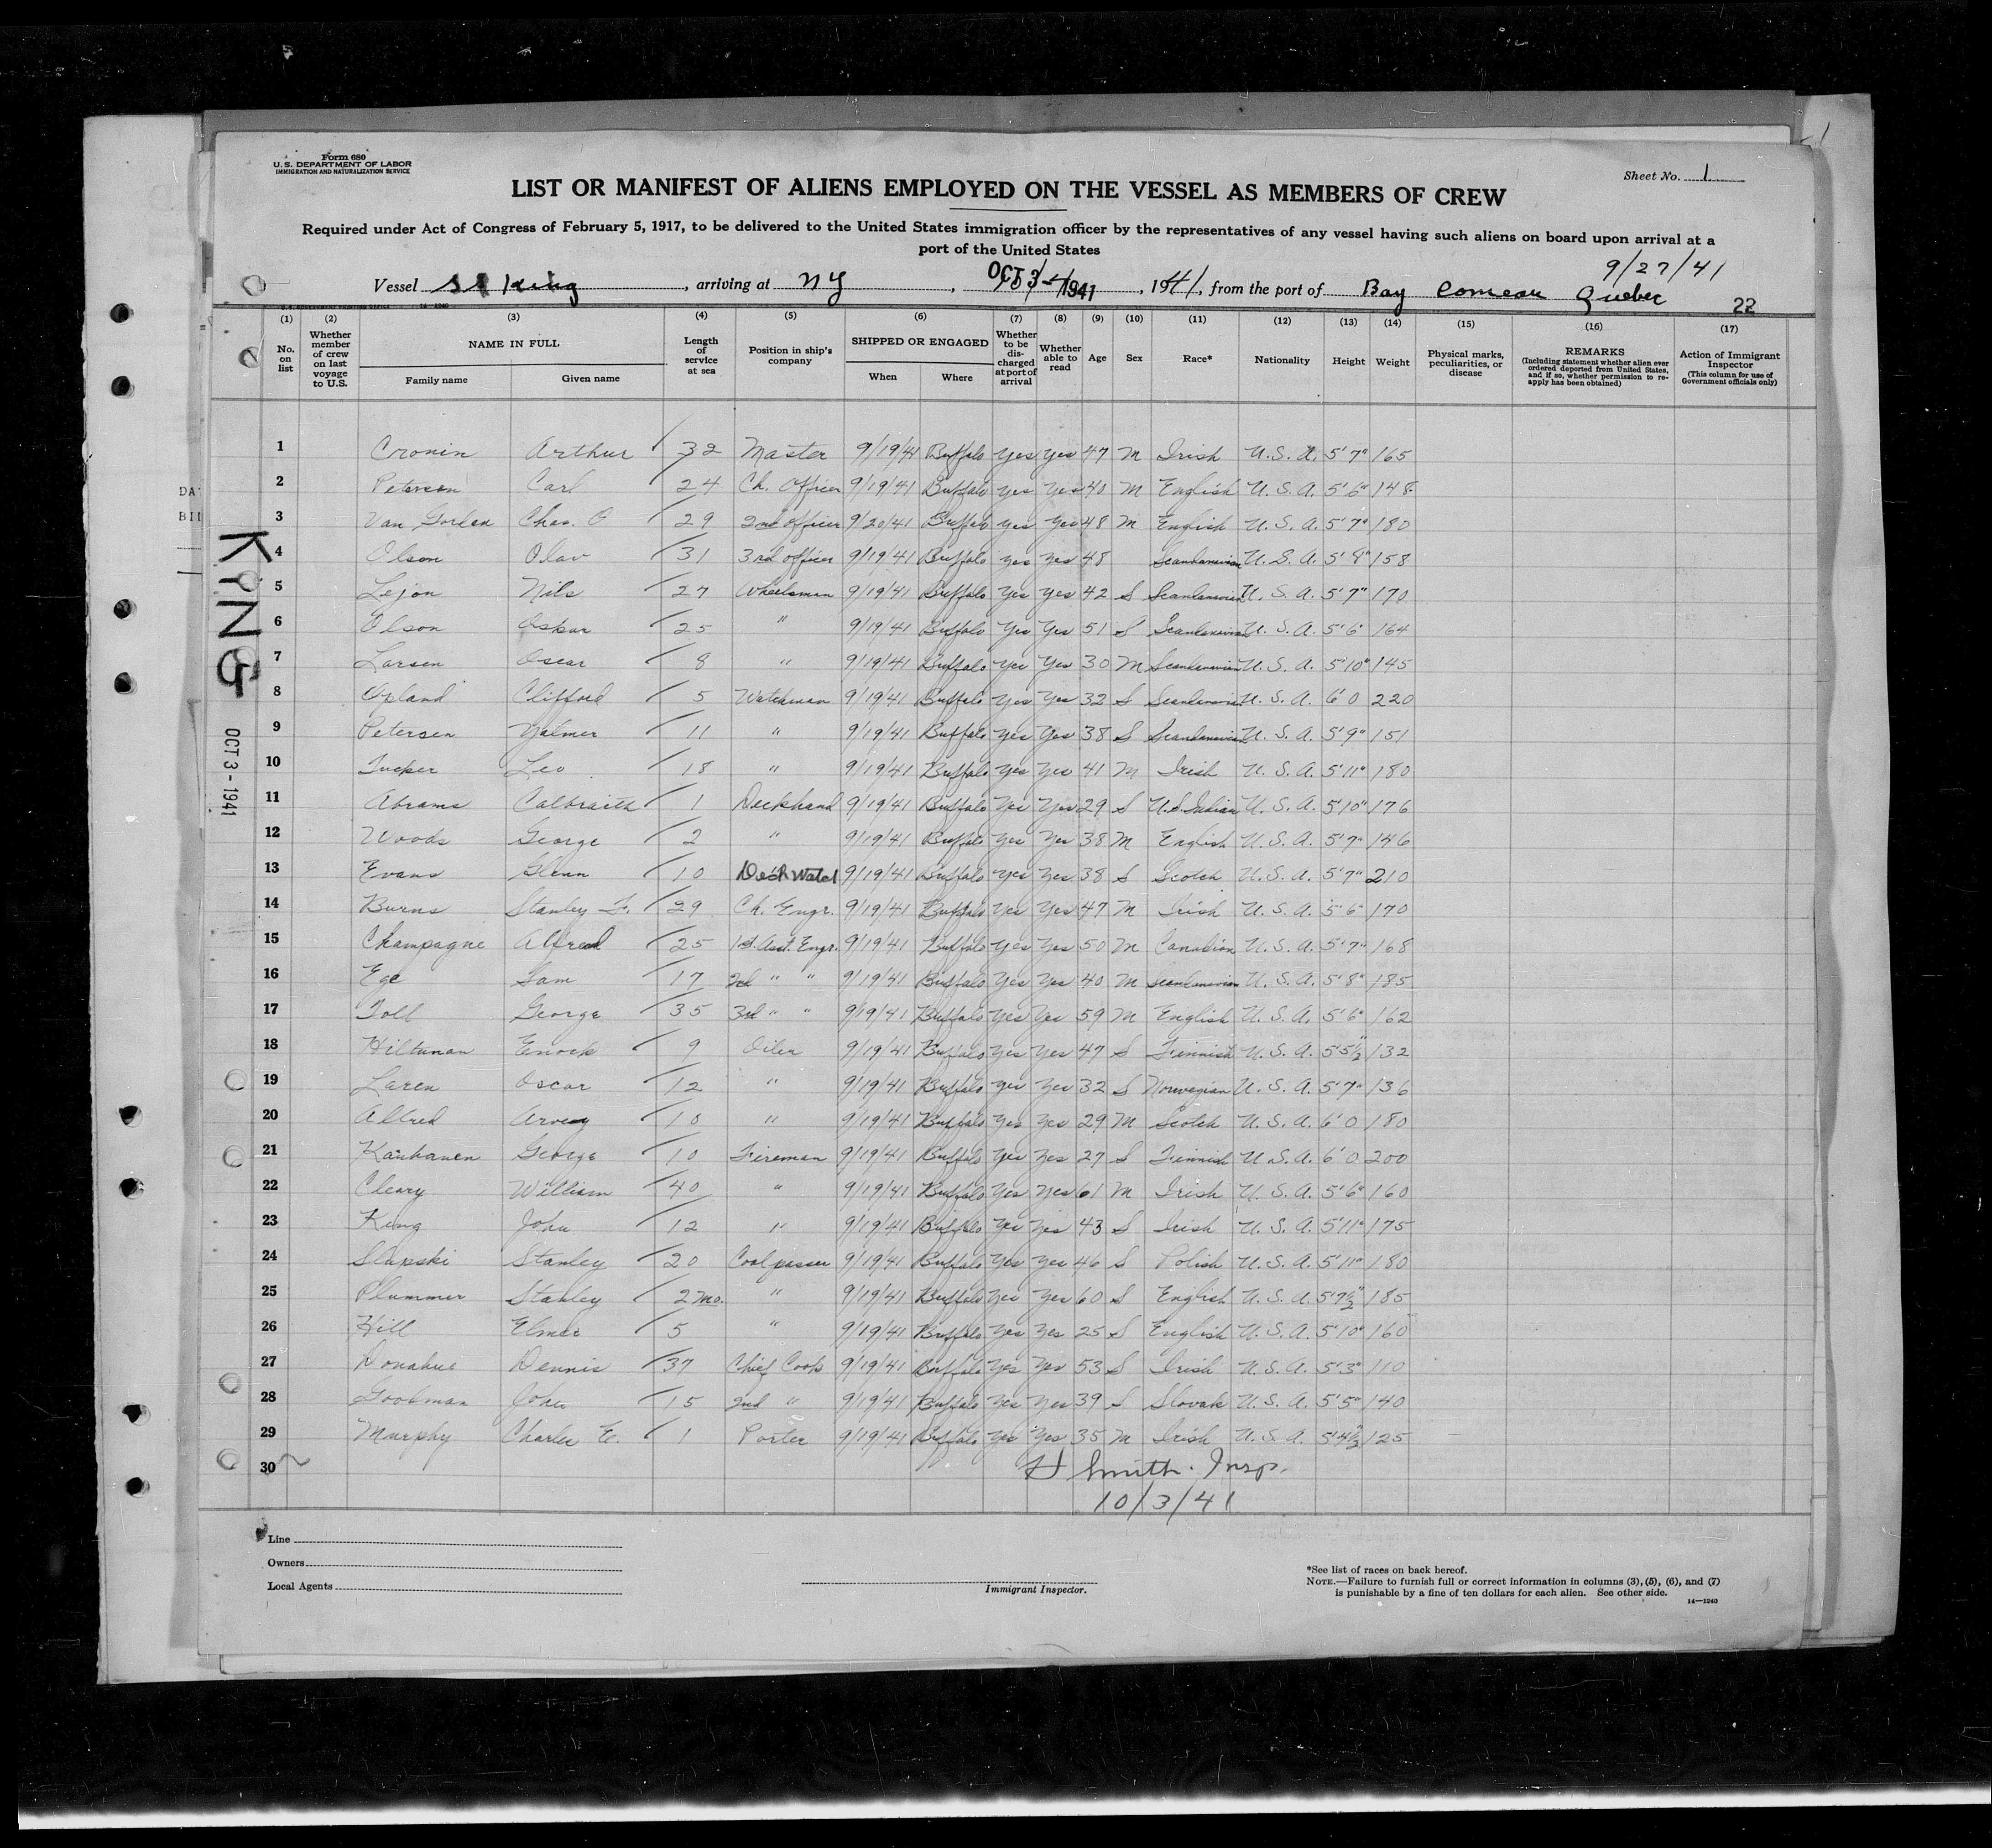 Form 680
U. S. DEPARTMENT OF LABOR
IMMIGRATION AND NATURALIZATION SERVICE
Sheet No. 1
LIST OR MANIFEST OF ALIENS EMPLOYED ON THE VESSEL AS MEMBERS OF CREW
Required under Act of Congress of February 5, 1917, to be delivered to the United States immigration officer by the representatives of any vessel having such aliens on board upon arrival at a
port of the United States
9/27/41
Vessel SS King, arriving at NY, OCT 3-1941, 1941, from the port of Bay Comeau Quebec
22
(1) (2) (3) (4) (5) (6) (7) (8) (9) (10) (11) (12) (13) (14) (15) (16) (17)
No. on list
Whether member of crew on last voyage to U.S.
NAME IN FULL
Family name
Given name
Length of service at sea
Position in ship's company
SHIPPED OR ENGAGED
When
Where
Whether to be discharged at port of arrival
Whether able to read
Age
Sex
Race*
Nationality
Height
Weight
Physical marks, peculiarities, or disease
REMARKS
(Including statement whether alien ever ordered deported from United States, and if so, whether permission to re-apply has been obtained)
Action of Immigrant Inspector
(This column for use of Government officials only)
1 Cronin Arthur 32 Master 9/19/41 Buffalo Yes Yes 47 M Irish U.S.A. 5'7" 165
2 Petersen Carl 24 Ch. Officer 9/19/41 Buffalo Yes Yes 40 M English U.S.A. 5'6" 148
3 Van Chas. O 29 2nd Officer 9/20/41 Buffalo Yes Yes 48 M English U.S.A. 5'7" 180
4 Olson Olav 31 3rd officer 9/19/41 Buffalo Yes Yes 48 Scandanavian U.S.A. 5'8" 158
5 Lejon Nils 27 Wheelsman 9/19/41 Buffalo Yes Yes 42 S Scandanavian U.S.A. 5'7" 170
6 Olson Oskar 25 " 9/19/41 Buffalo Yes Yes 51 S Scandanavian U.S.A. 5'6" 164
7 Larsen Oscar 8 " 9/19/41 Buffalo Yes Yes 30 M Scandanavian U.S.A. 5'10" 145
8 Opland Clifford 5 Watchman 9/19/41 Buffalo Yes Yes 32 S Scandanavian U.S.A. 6'0 220
9 Petersen Yalmer 11 " 9/19/41 Buffalo Yes Yes 38 S Scandanavian U.S.A. 5'9" 151
10 Tucker Leo 18 " 9/19/41 Buffalo Yes Yes 41 M Irish U.S.A. 5'11" 180
11 Abrams Calbraith 1 Deckhand 9/19/41 Buffalo Yes Yes 29 S U.S. Indian U.S.A. 5'10" 176
12 Woods George 2 " 9/19/41 Buffalo Yes Yes 38 M English U.S.A. 5'7" 146
13 Evans Glenn 10 Deck Watch 9/19/41 Buffalo Yes Yes 38 S Scotch U.S.A. 5'7" 210
14 Burns Stanley F. 29 Ch. Engr. 9/19/41 Buffalo Yes Yes 47 M Irish U.S.A. 5'6" 170
15 Champagne Alfred 25 1st. Asst. Engr. 9/19/41 Buffalo Yes Yes 50 M Canadian U.S.A. 5'7" 168
16 Ege Sam 17 2nd " " 9/19/41 Buffalo Yes Yes 40 M Scandanavian U.S.A. 5'8" 185
17 Toll George 35 3rd " " 9/19/41 Buffalo Yes Yes 59 M English U.S.A. 5'6" 162
18 Hiltunan Enock 9 Oiler 9/19/41 Buffalo Yes Yes 47 S Finnish U.S.A. 5'5½" 132
19 Laren Oscar 12 " 9/19/41 Buffalo Yes Yes 32 S Norwegian U.S.A. 5'7" 136
20 Allred Arvey 10 " 9/19/41 Buffalo Yes Yes 29 M Scotch U.S.A. 6'0 180
21 George 10 Fireman 9/19/41 Buffalo Yes Yes 27 S Finnish U.S.A. 6'0 200
22 Cleary William 40 " 9/19/41 Buffalo Yes Yes 61 M Irish U.S.A. 5'6" 160
23 King John 12 " 9/19/41 Buffalo Yes Yes 43 S Irish U.S.A. 5'11" 175
24 Slapski Stanley 20 Coal passer 9/19/41 Buffalo Yes Yes 46 S Polish U.S.A. 5'11" 180
25 Plummer Stanley 2 mo. " 9/19/41 Buffalo Yes Yes 60 S English U.S.A. 5'7½" 185
26 Hill Elmer 5 " 9/19/41 Buffalo Yes Yes 25 S English U.S.A. 5'10" 160
27 Donahue Dennis 37 Chief Cook 9/19/41 Buffalo Yes Yes 53 S Irish U.S.A. 5'3" 110
28 Goodman John 15 2nd " 9/19/41 Buffalo Yes Yes 39 S Slovak U.S.A. 5'5" 140
29 Murphy Charles E. 1 Porter 9/19/41 Buffalo Yes Yes 35 M Irish U.S.A. 5'4½" 125
30
Smith. Insp.
10/3/41
KING
OCT 3-1941
Line
Owners
Local Agents
Immigrant Inspector.
*See list of races on back hereof.
NOTE.—Failure to furnish full or correct information in columns (3), (5), (6), and (7)
is punishable by a fine of ten dollars for each alien. See other side.
14—1240